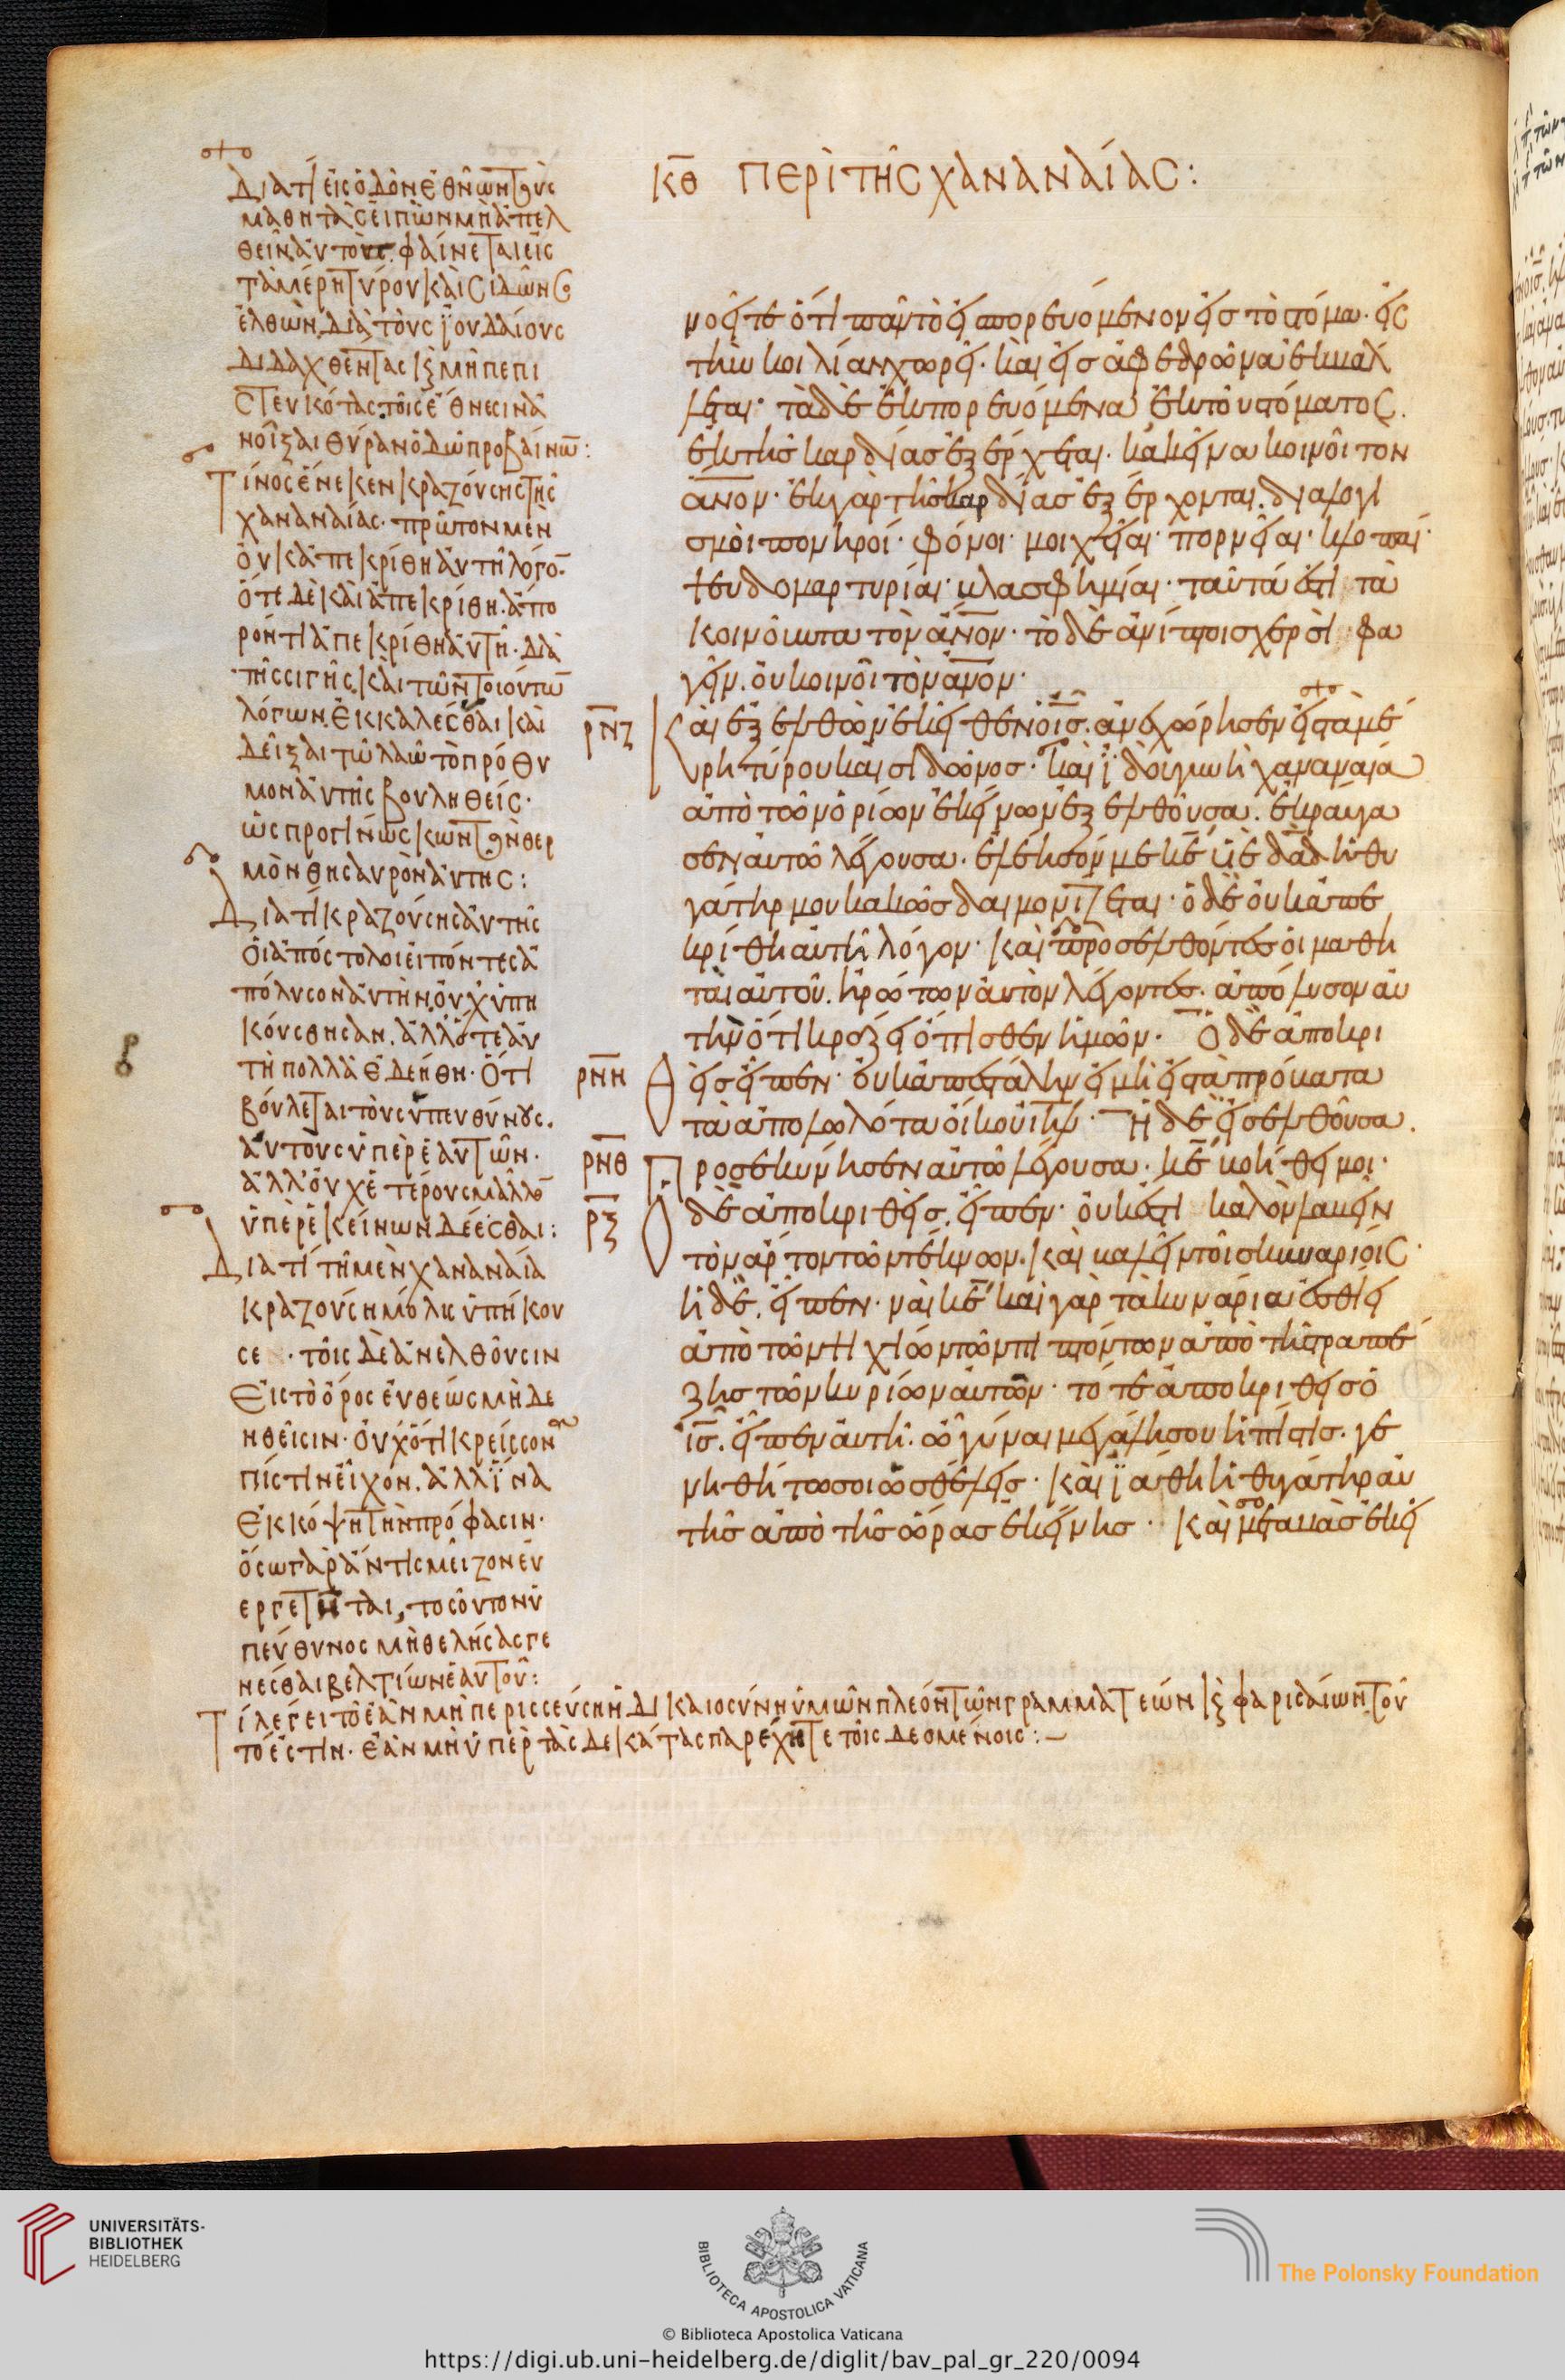 Διατί εἰς ὁδὸν ἐθνῶν τοὺς
μαθητὰς εἰπὼν μὴ ἀπελ
θεῖν αὐτοὺς φαίνεται εἰς
τὰ μέρη τύρου καὶ σιδῶνος
ἐλθών, διὰ τοὺς ϊουδαίους
διδαχθέντας καὶ μὴ πεπι
στευκότας τοῖς ἔθνεσιν ἀ
νοῖξαι θύραν ὁδῷ προβαίνων:
Τίνος ἕνεκεν κραζούσης τῆς
χαναναίας· πρῶτον μὲν
οὐκ ἀπεκρίθη αὐτῇ λόγον·
ὅτε δὲ καὶ ἀπεκρίθη, ἀπο
ροντι ἀπεκρίθη αὐτῇ· διὰ
τῆς σιγῆς, καὶ τῶν τοιούτων
λόγων. ἐκκαλέσθαι καὶ
δεῖξαι τῷ λαῷ τὸ πρόθυ
μον αὐτῆς βουληθείς·
ὡς προγινώσκων τὸν θερ
μὸν θησαυρὸν αὐτῆς:
Διατί κραζούσης αὐτῆς
οἱ ἀπόστολοι εἰπόντες ἀ
πόλυσον αὐτὴν, οὐχ ὑπη
κούσθησαν. ἀλλ' ὅτε αὐ
τὴ πολλὰ ἐδεήθη· Ὅτι
βούλεται τοὺς ὑπευθύνους.
αὐτοὺς ὑπὲρ ἑαυτῶν·
ἀλλ' οὐχ ἑτέρους μᾶλλον
ὑπὲρ ἐκείνων δέεσθαι:
Διατί τῇ μὲν χαναναία
κραζούσῃ μόλις ὑπήκου
σε · τοῖς δὲ ἀνελθοῦσιν
Εἰς τὸ ὄρος εὐθέως μὴ δε
ηθεῖσιν· οὐχ ὅτι κρείσσονα
πίστιν εἶχον. ἀλλ' ϊνα
ἐκκόψῃ τὴν πρόφασιν·
ὅσω γὰρ ἄν τις μεῖζον εὐ
εργετῆται, τοσοῦτον ὑ
πεύθυνος μὴ θελήσας γε
νέσθαι βελτίων ἑαυτοῦ:
Τί λέγει τὸ ἐὰν μὴ περισσεύσῃ ἡ δικαιοσύνη ὑμῶν πλέον τῶν γραμματεών καὶ φαρισαίων τοῦ
το ἐστιν· ἐὰν μὴ ὑπὲρ τὰς δεκάτας παρέχητε τοῖς δεομένοις:—
κθ περὶ τῆς χαναναίας:
νοεῖτε ὅτι πᾶν τὸ εἰσπορευόμενον εἰς τὸ στόμα· εἰς
τὴν κοιλίαν χωρεῖ· καὶ εἰς ἀφεδρῶνα ἐκβάλ
λεται· τὰ δὲ ἐκπορευόμενα ἐκ τοῦ στόματος.
ἐκ τῆς καρδίας ἐξέρχεται. κακεῖνα κοινοῖ τον
ἄνον· ἐκ γὰρ τῆς καρδίας ἐξέρχονται. διαλογι
σμοὶ πονηροί· φόνοι· μοιχεῖαι· πορνεῖαι· κλοπαί·
ψευδομαρτυρίαι· βλασφημίαι· ταῦτά ἐστι τὰ
κοινοῦντα τὸν ἄνον· τὸ δὲ ἀνίπτοις χερσὶ φα
γεῖν. οὐ κοινοῖ τὸν ἄνον·
ρνζ Καὶ ἐξελθὼν ἐκεῖθεν ὁ ις. ἀνεχώρησεν εἰς τὰ μέ
ρη τύρου καὶ σιδῶνος· Καὶ ϊδοὺ γυνὴ χαναναία
ἀπὸ τῶν ὁρίων ἐκείνων ἐξελθοῦσα. ἐκραύγα
σεν αὐτῷ λέγουσα. ἐλέησόν με κε υἱὲ δαδ ἡ θυ
γάτηρ μου κακῶς δαιμονίζεται· ὁ δὲ οὐκ ἀπε
κρίθη αὐτῇ λόγον· Καὶ προσελθόντες οἱ μαθη
ταὶ αὐτοῦ. ἠρώτων αὐτὸν λέγοντες. ἀπόλυσον αὐ
τὴν ὅτι κράζει ὄπισθεν ἡμῶν· Ὁ δὲ ἀποκρι
ρνη θεὶς εἶπεν· οὐκ ἀπεστάλην εἰ μὴ εἰς τὰ πρόβατα
τὰ ἀπολωλότα οἴκου ιηλ· Ἡ δὲ εἰσελθοῦσα.
ρνθ Προσεκύνησεν αὐτῷ λέγουσα. κε βοήθει μοι·
ρξ Ὁ δὲ ἀποκριθεὶς. εἶπεν· οὐκ ἔστι καλὸν λαβεῖν
τὸν ἄρτον τῶν τέκνων. καὶ βαλεῖν τοῖς κυναρίοις·
ἡ δὲ. εἶπεν· ναὶ κε καὶ γὰρ τὰ κυνάρια ἐσθίει
ἀπὸ τῶν ψιχίων τῶν πιπτόντων ἀπὸ τῆς τραπέ
ζης τῶν κυρίων αὐτῶν· τότε ἀποκριθεὶς ὁ
ις. εἶπεν αὐτῇ. ὦ γύναι μεγάλη σου ἡ πίστις. γε
νηθήτω σοι ὡς θέλεις· καὶ ϊάθη ἡ θυγάτηρ αὐ
τῆς ἀπὸ τῆς ὥρας ἐκείνης· Καὶ μεταβὰς ἐκεῖ
UNIVERSITÄTS-
BIBLIOTHEK
HEIDELBERG
BIBLIOTECA APOSTOLICA VATICANA
The Polonsky Foundation
© Biblioteca Apostolica Vaticana
https://digi.ub.uni-heidelberg.de/diglit/bav_pal_gr_220/0094